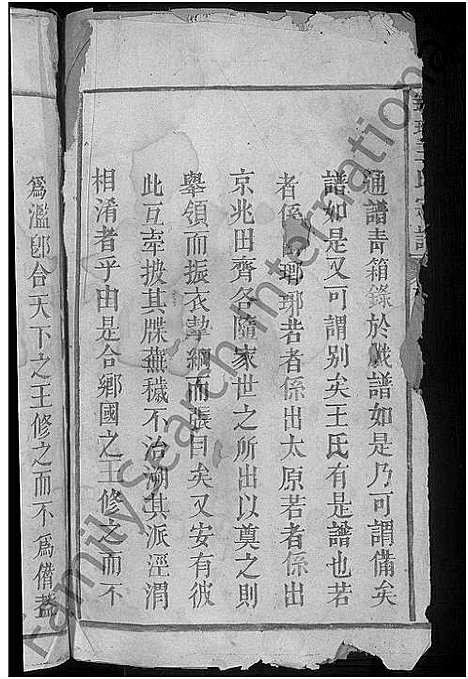 通譜青箱錄於戲譜如是乃可謂備矣
譜如是又可謂別矣王氏有是譜也若
者係出瑯琊若者係出太原若者係出
京兆田齊各隨家世之所出以奠之則
舉領而振衣挈綱而張目矣又安有彼
此互牽披其牒蕪穢不治溯其派涇渭
相淆者乎由是合鄉國之王修之而不
為濫卽合天下之王修之而不為僭蓋
FamilySearch International